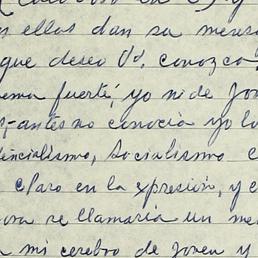 ellos dan su mensa
que deseo Ud. conozca
ema fuerte, yo ni de Jov
s-antes no conocía yo lo
tencialismo, Socialismo c
claro en la expresión, y c
ora se llamaría un me
mi cerebro de joven y